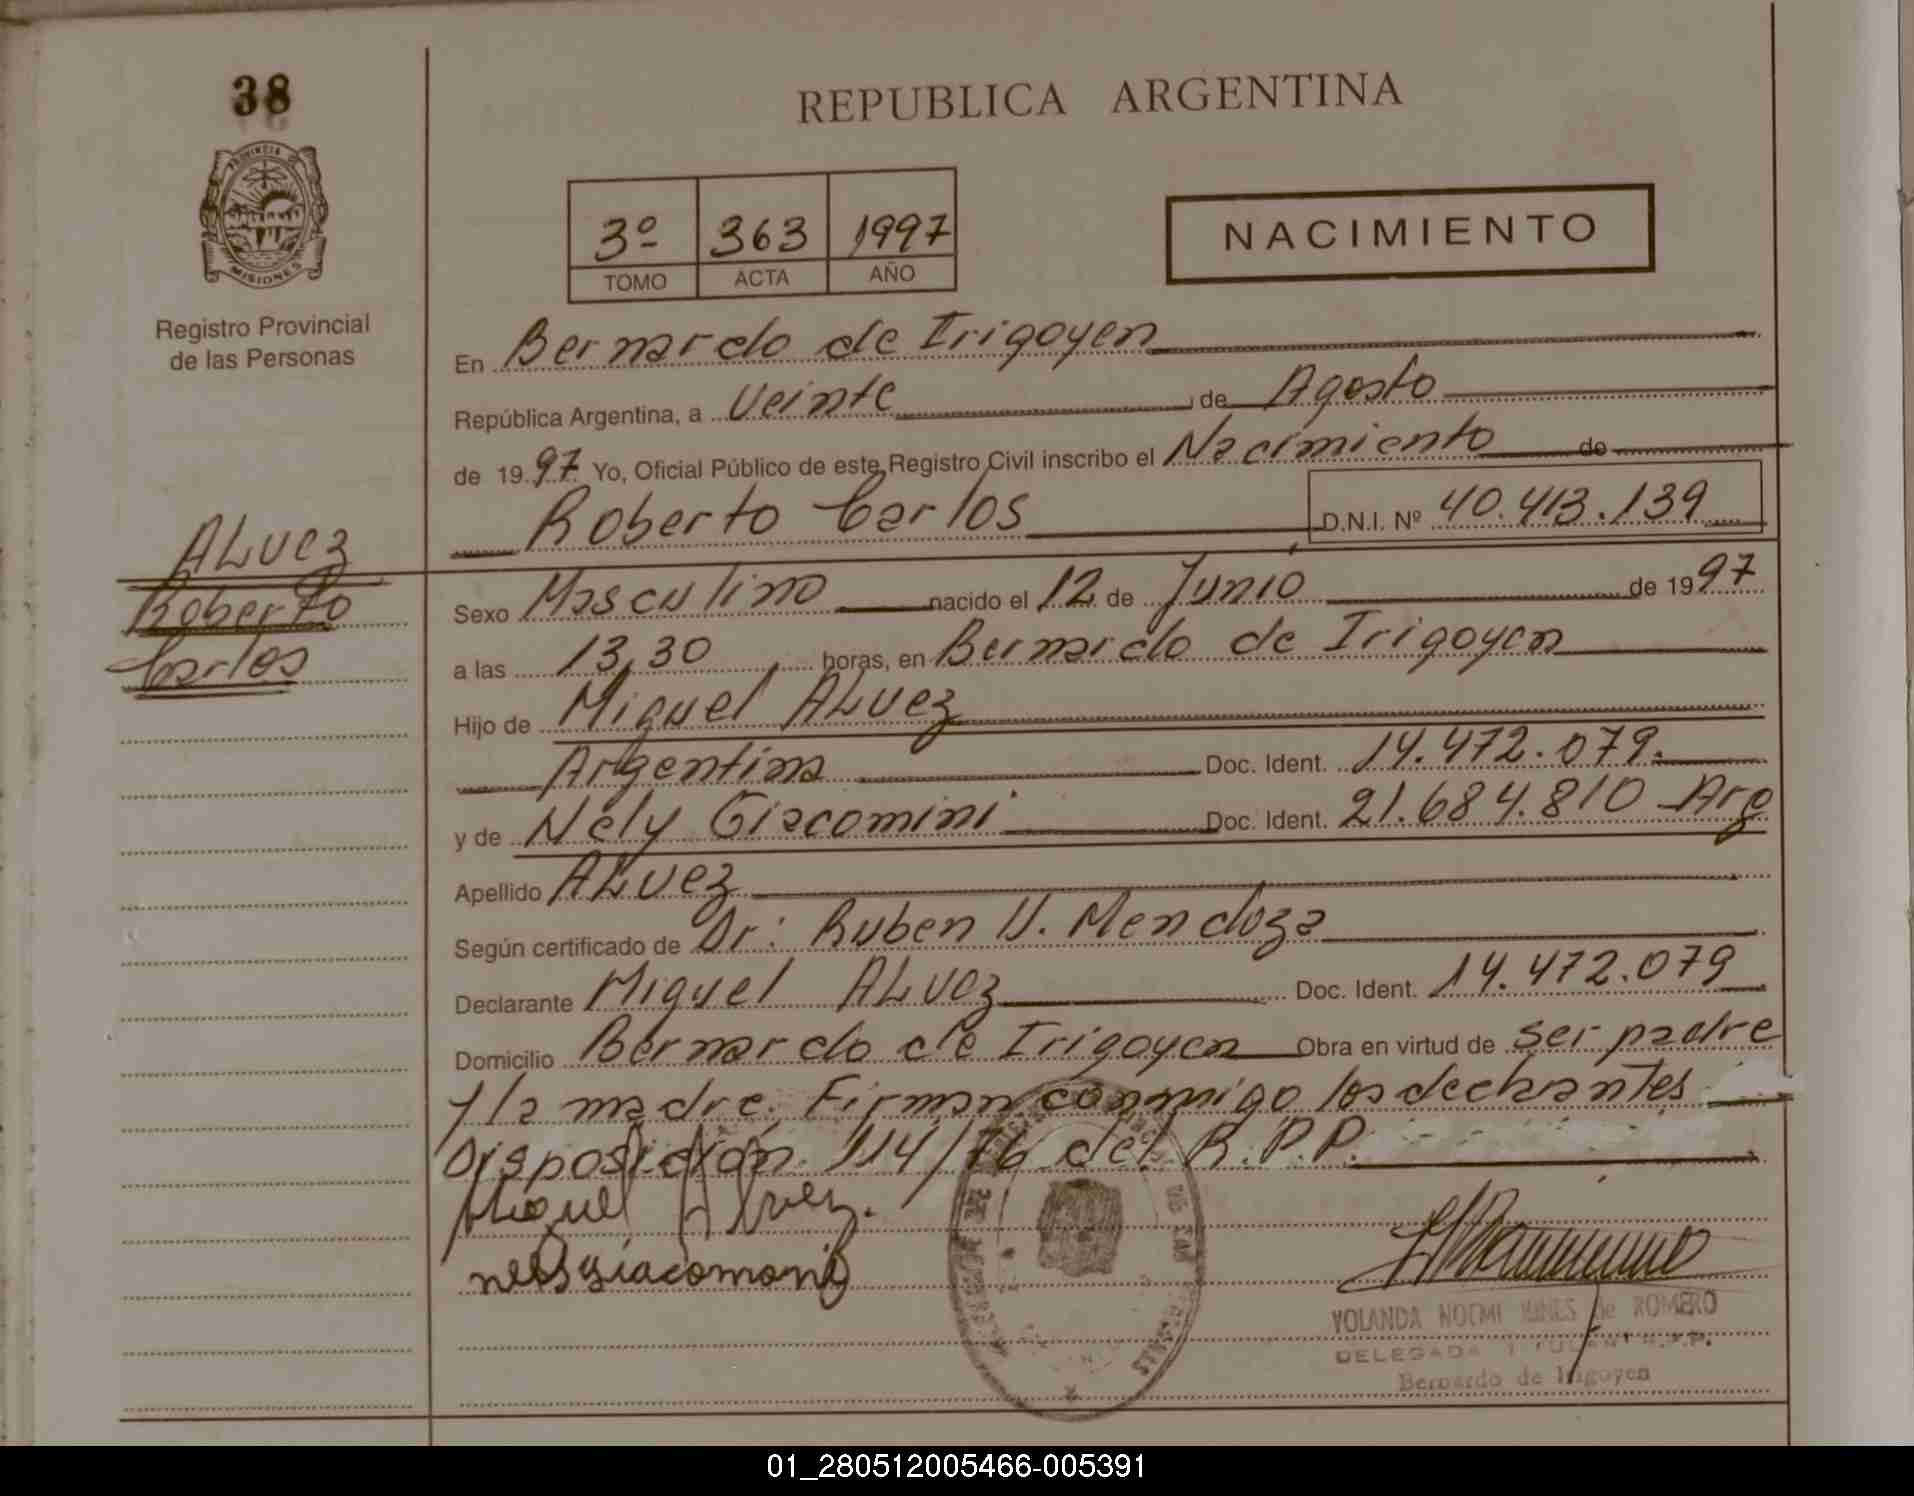 38
PROVINCIA DE
MISIONES
Registro Provincial
de las Personas
ALVEZ
Roberto
Carlos
REPUBLICA ARGENTINA
3º 363 1997
TOMO ACTA AÑO
NACIMIENTO
En Bernardo de Irigoyen
República Argentina, a Veinte de Agosto
de 1997 Yo, Oficial Público de este Registro Civil inscribo el Nacimiento de
Roberto Carlos D.N.I. Nº 40.413.139
Sexo Masculino nacido el 12 de Junio de 1997
a las 13,30 horas, en Bernardo de Irigoyen
Hijo de Miguel ALVEZ
Argentina Doc. Ident. 14.472.079.
y de Nely Giacomini Doc. Ident. 21.684.810 Arg
Apellido ALVEZ
Según certificado de Dr: Ruben U. Mendoza
Declarante Miguel ALVEZ Doc. Ident. 14.472.079
Domicilio Bernardo de Irigoyen Obra en virtud de ser padre
y la madre. Firman conmigo los declarantes
Disposición 114/76 del R.P.P.
Miguel Alvez.
YOLANDA NOEMI de ROMERO
DELEGADA TITULAR R.P.P.
Bernardo de Irigoyen
01_280512005466-005391